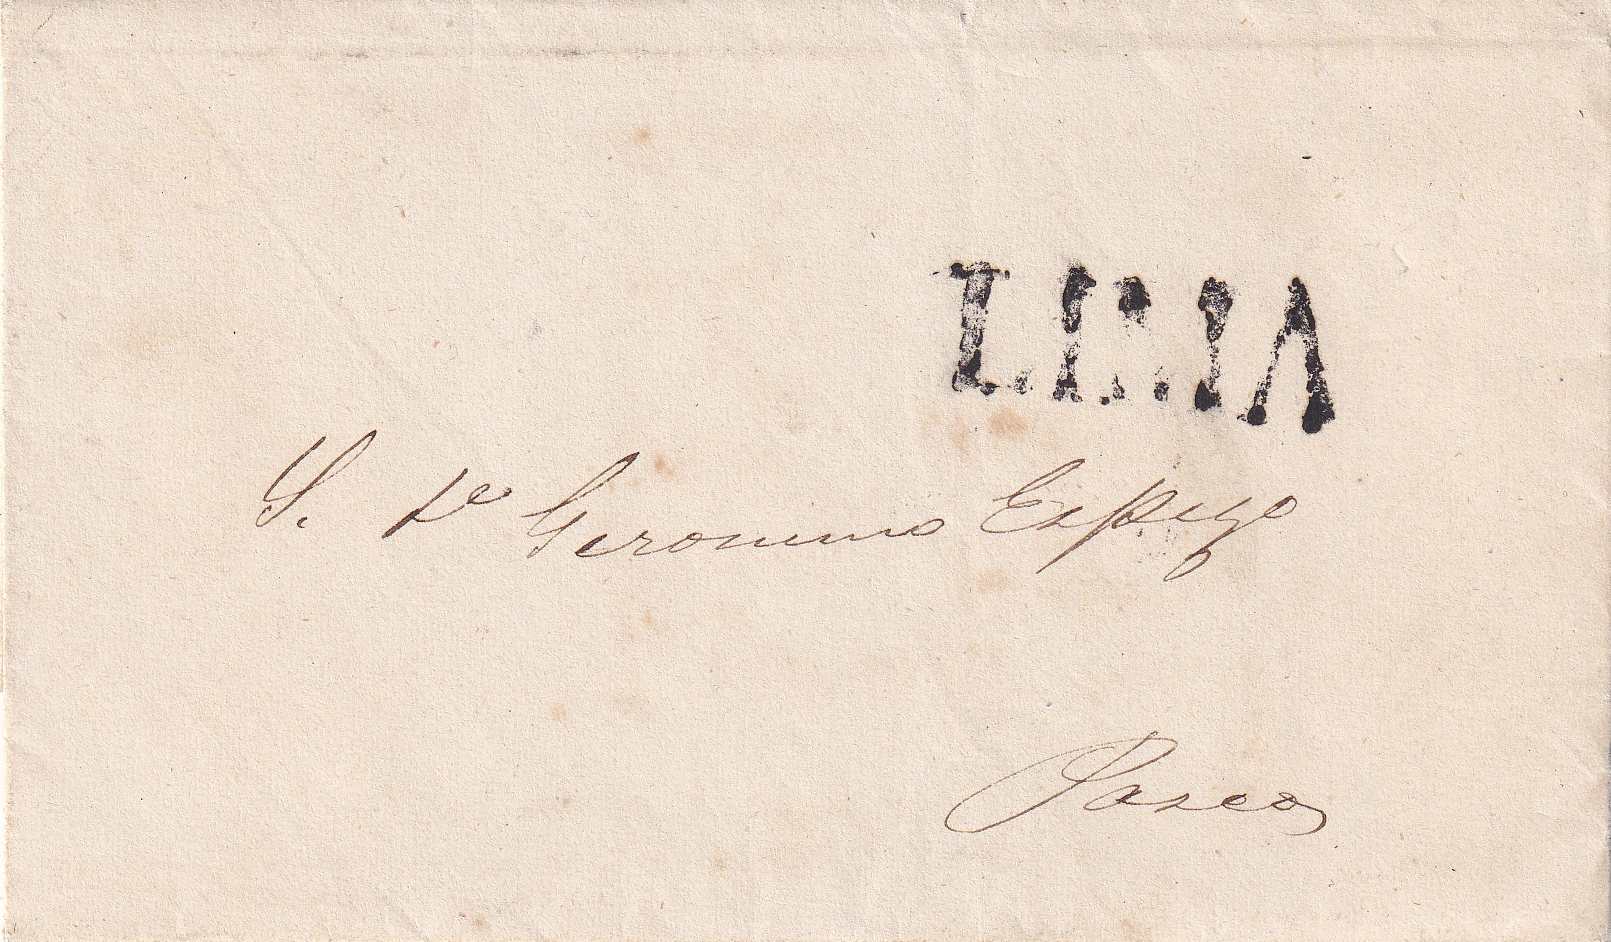 LIMA
S. Dn Geronimo Espejo
Pasco